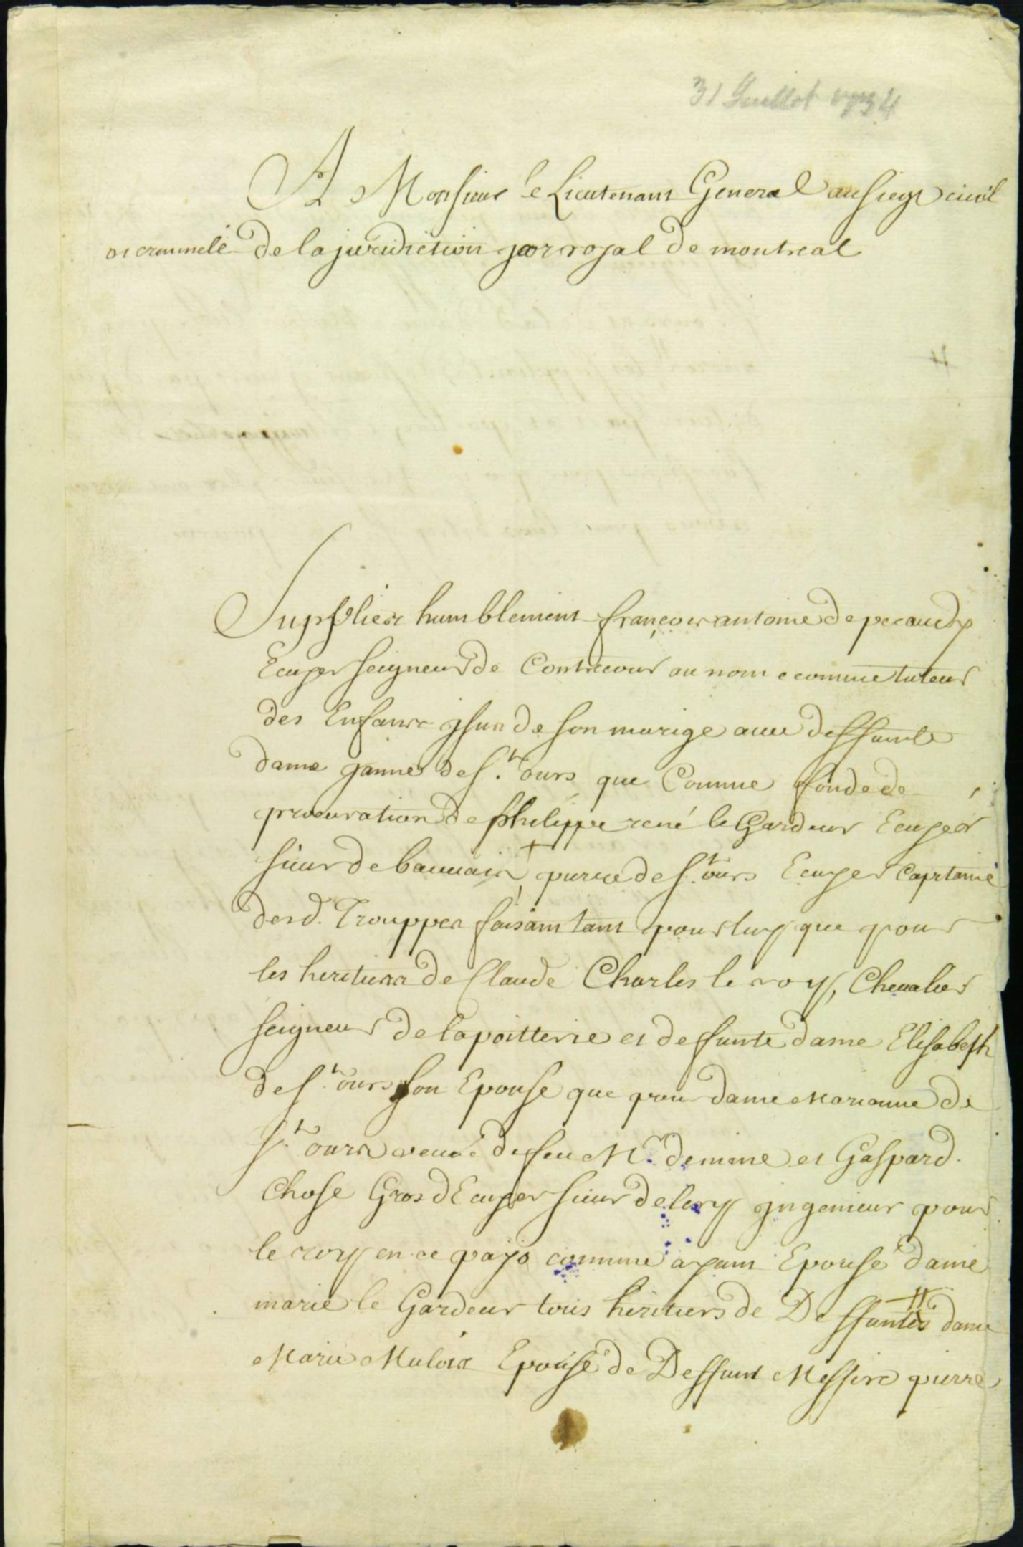 31 Juillet 1734
A Monsieur le Lieutenant General au siege civil
et criminele de la juridiction royal de montreal
Supplier humblement françois antoine de pecaudy
Ecuyer seigneur de Contrecour au nom e comme tuteur
des Enfans jssus de son marige avec deffunte
dame janne de S.t ours que Comme fondé de
procuration de philippe rené le Gardeur Ecuyer
sieur de bauvais + pierre de S.t ours Ecuyer Capitaine
des d. Trouppes faisant tant pour luy que pour
les heritiers de Claude Charles le roy, Chevalier
seigneur de la poitterie et deffunte dame Elisabeth
de S.t ours son Epouse que pour dame Marianne de
S.t ours veuve de feu Mr. demine et Gaspard.
Chose Gros d Ecuyer sieur de lery jngenieur pour
le roy en ce pays comme ayant Epousé dame
marie le Gardeur tous heritiers de Deffuntes dame
Marie Mulois Epouse de Deffunt Messire pierre